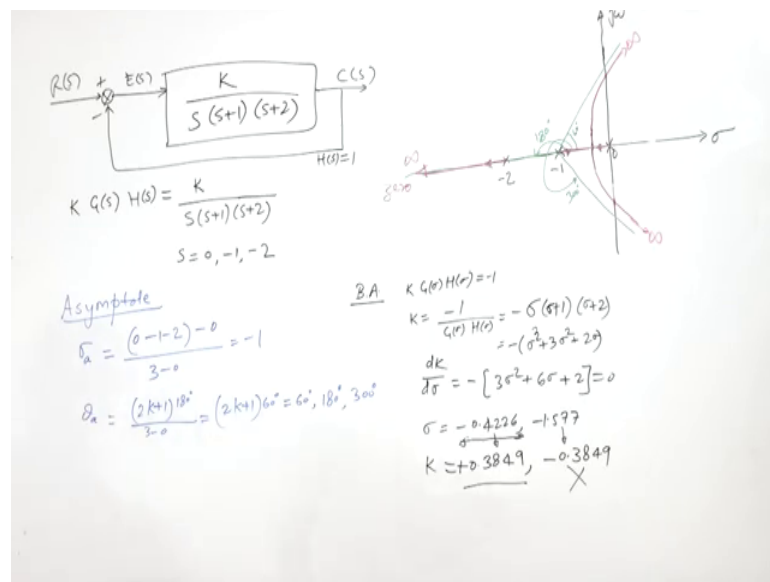 R(s) + E(s) K C(s)
S(S+1)(S+2)
−
H(s)=1
K G(s) H(s) = K
S(S+1)(S+2)
S=0,-1,-2
Asymptote
σa = (0-1-2)-0 = -1
3-0
θa = (2K+1)180° = (2K+1)60° = 60°, 180°, 300°
3-0
jω
∞
180°
60°
σ
∞
-2
-1
0
300°
∞
B.A K G(σ) H(σ) = -1
K = -1 = -σ(σ+1)(σ+2)
G(σ) H(σ) = -(σ³+3σ²+2σ)
dK = -[3σ²+6σ+2] = 0
dσ
σ = -0.4226, -1.577
K = +0.3849, -0.3849
X